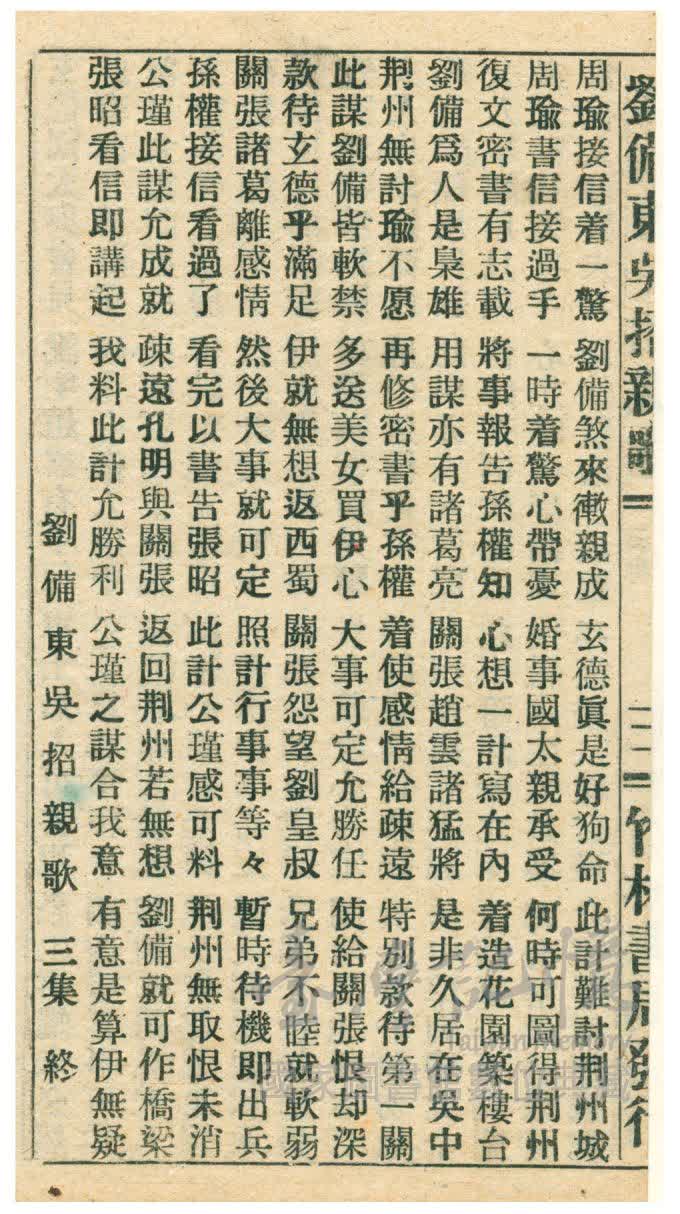 劉備東吳招親歌 二 竹林書局發行
周瑜接信着一驚 劉備煞來儎親成 玄德眞是好狗命 此計難討荆州城
周瑜書信接過手 一時着驚心帶憂 婚事國太親承受 何時可圖得荆州
復文密書有志載 將事報告孫權知 心想一計寫在內 着造花園築樓台
劉備爲人是梟雄 用謀亦有諸葛亮 關張趙雲諸猛將 是非久居在吳中
荆州無討瑜不愿 再修密書乎孫權 着使感情給疎遠 特別款待第一關
此謀劉備皆軟禁 多送美女買伊心 大事可定允勝任 使給關張恨却深
款待玄德乎滿足 伊就無想返西蜀 關張怨望劉皇叔 兄弟不陸就軟弱
關張諸葛離感情 然後大事就可定 照計行事事等々 暫時待機即出兵
孫權接信看過了 看完以書告張昭 此計公瑾感可料 荆州無取恨未消
公瑾此謀允成就 疎遠孔明與關張 返回荆州若無想 劉備就可作橋梁
張昭看信即講起 我料此計允勝利 公瑾之謀合我意 有意是算伊無疑
劉備東吳招親歌 三集 終
國家圖書館